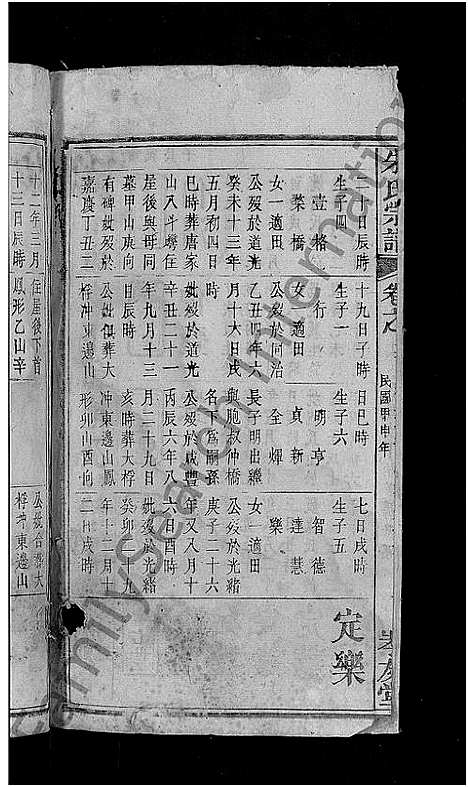 朱氏宗譜
卷之
民國甲申年
日辰時
生子四
壹格
榮橋
女一適田
公歿於道光
癸未十三年
五月初四日
巳時葬唐家
山八斗塝住
屋後與母同
墓甲山庚向
有碑妣歿於
嘉慶丁丑二
十九日子時
生子一
行
女適田
公歿於同治
乙丑四年六
月十六日戌
時
妣歿於道光
辛丑二十一
年九月十三
日辰時
公妣俱葬大
桴冲東邊山
日巳時
生子六
明亨
貞新
全煇
長子明出繼
與胞叔仲橋
名下爲嗣孫
公歿於咸豐
丙辰六年八
月二十九日
亥時葬大桴
冲東邊山鳳
形卯山酉向
七日戌時
生子五
智德
達慧
樂
女一適田
公歿於光緒
庚子二十六
年又八月十
六日酉時
妣歿於光緒
癸卯二十九
年十二月十
二日戌時
定樂
十二年三月
十三日辰時
住屋後下首
鳳形乙山辛
公妣合葬大
桴冲東邊山